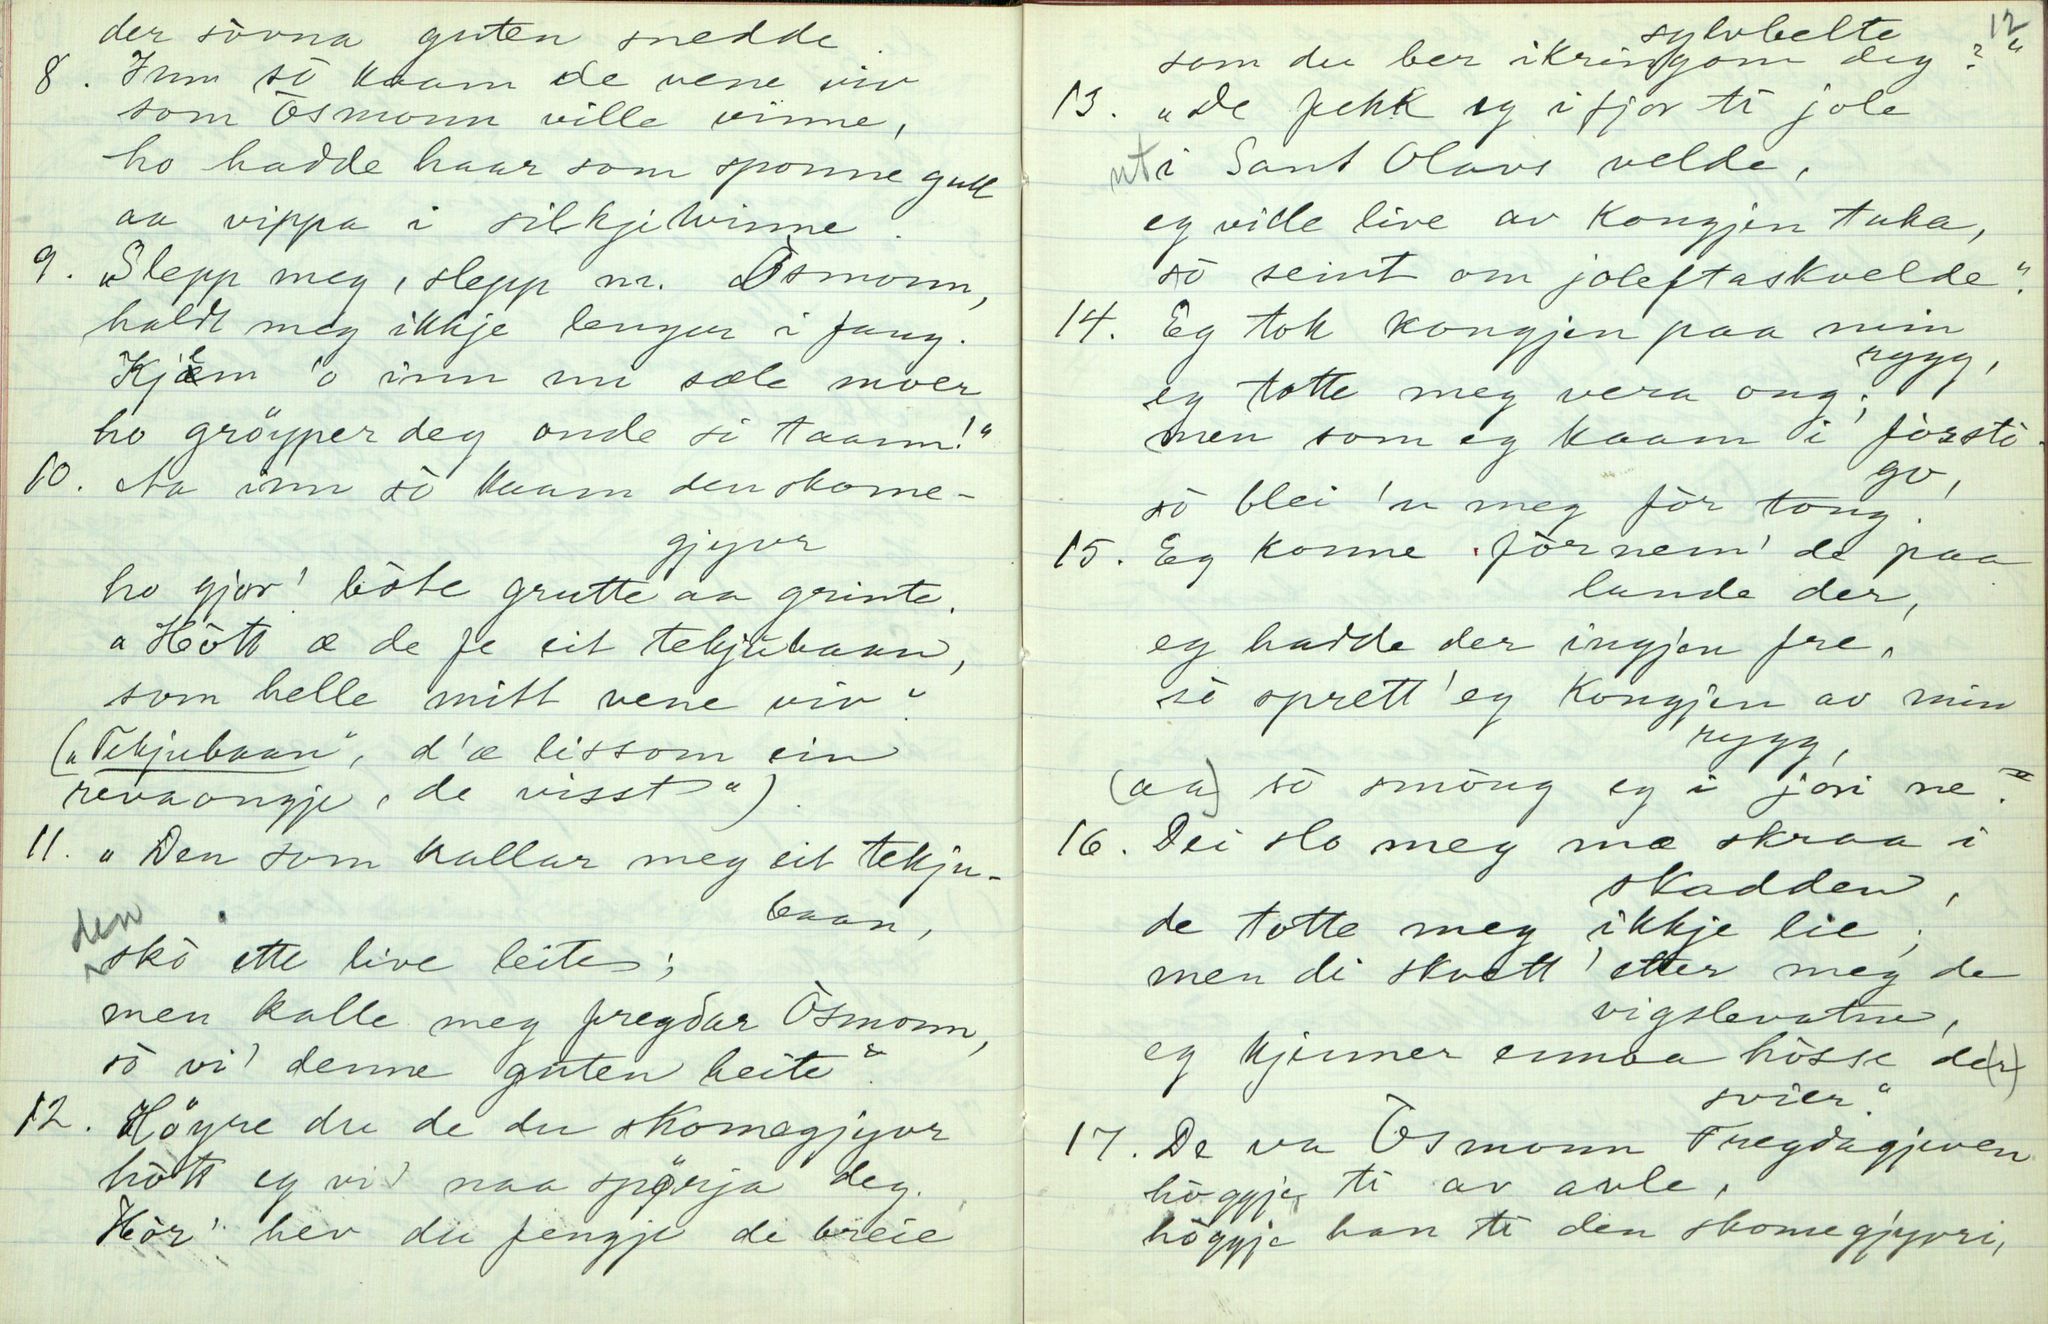 der sòvna guten snedde
8. Inn sò kaam de vene viv
som Òsmonn ville vinne,
ho hadde haar som sponne gull
aa vippa i silkjitvinne.
9. „Slepp meg, slepp m. Òsmonn,
haldt meg ikkje lenger i fang.
Kjæm 'o inn mi sæle moer
ho gröyper deg onde si taann!“
10. Aa inn sò kaam den skome-
gjyvr
ho gjor' bòte grutte aa grinte.
„Hòtt æ de fe eit tekjubaan,
som helle mitt vene viv“.
(„Tekjubaan“, d'æ lissom ein
revaongje, de visst“).
11. „Den som kallar meg eit tekju-
baan,
den skò ette live leite;
men kalle meg fregdar Òsmonn,
sò vi' denne guten heite“.
12. Höyre du de du skomegjyvr
hòtt eg vi' naa spörja deg.
Hòr' hev du fengje de breie
12
sylvbelte
som du ber ikringom deg?“
13. „De fekk eg i fjor ti jole
ut i Sant Olavs velde,
eg ville live av kongjen taka,
sò seint om joleftaskvelde“.
14. Eg tok kongjen paa min
rygg,
eg totte meg vera ong;
men som eg kaam i fòrstò-
go,
sò blei 'n meg fòr tong.
15. Eg konne fòrnem' de paa
lande der,
eg hadde der ingjen fre,
sò sprett' eg kongjen av min
rygg,
(aa) sò smòng eg i jori ne“.
16. Dei slo meg mæ skraa i
skadden,
de totte meg ikkje lie;
men di skvett' etter meg de
vigslevatne,
eg kjenner ennaa hòsse de(r)
svier.“
17. De va Òsmonn Fregdagjeven
höggje ti av avle,
höggje han ti den skomegjyvri,